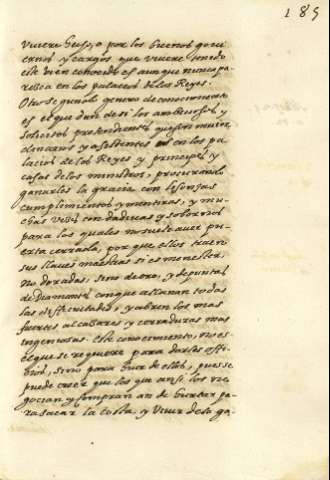 185
viviere Greso, o por los buenos govi-
ernos y cargos que viviere tenido
este bien conocido es aunque nunca pa-
resca en los palacios de los Reyes.
Otro segundo genero de conocimiento
es el que dan de si los ambiciosos y
solicitos pretendientes que son muy or-
dinarios y asestentes en los pa-
lacios de los Reyes y principes y
casas de los ministros, procurando
ganarles la gracia con lisonjas
cumplimientos y mentiras, y mu-
chas veses con dadivas y sobornos
para los quales no suele aver pu-
erta cerrada, porque ellos traen
sus llaves maestras si es menester,
no doradas, sino de oro, y de puntas
de Diamantes con que allanan todas
las difficultades, y abren los mas
fuertes alcazares y cerraduras mas
ingeniosas. Este conocimiento, no es
el que se requiere para darles offi-
cios, sino para huir de ellos, pues se
puede creer que los que ansi los ne-
gocian y compran an de hurtar pa-
ra sacar la costa, y vivir de la ga-